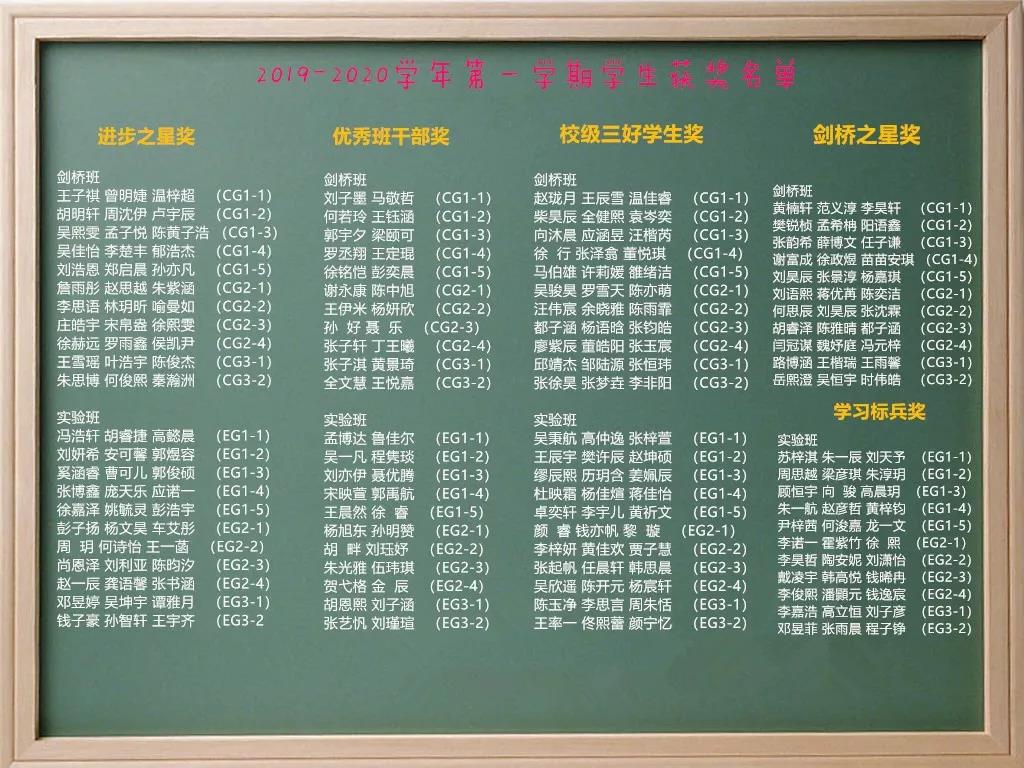 2019-2020学年第一学期学生获奖名单
进步之星奖
剑桥班
王子祺 曾明婕 温梓超 (CG1-1)
胡明轩 周沈伊 卢宇辰 (CG1-2)
吴熙雯 孟子悦 陈黄子浩 (CG1-3)
吴佳怡 李楚丰 郁浩杰 (CG1-4)
刘浩恩 郑启晨 孙亦凡 (CG1-5)
詹雨彤 赵思越 朱紫涵 (CG2-1)
李思语 林玥昕 喻曼如 (CG2-2)
庄皓宇 宋帛盎 徐熙雯 (CG2-3)
徐赫远 罗雨鑫 侯凯尹 (CG2-4)
王雪瑶 叶浩宇 陈俊杰 (CG3-1)
朱思博 何俊熙 秦瀚洲 (CG3-2)
实验班
冯浩轩 胡睿捷 高懿晨 (EG1-1)
刘妍希 安可馨 郭煜容 (EG1-2)
奚涵睿 曹可儿 郭俊硕 (EG1-3)
张博鑫 庞天乐 应诺一 (EG1-4)
徐嘉泽 姚毓灵 彭浩宇 (EG1-5)
彭子扬 杨文昊 车艾彤 (EG2-1)
周 玥 何诗怡 王一菡 (EG2-2)
尚恩泽 刘利亚 陈昀汐 (EG2-3)
赵一辰 龚语馨 张书涵 (EG2-4)
邓昱婷 吴坤宇 谭雅月 (EG3-1)
钱子豪 孙智轩 王宇齐 (EG3-2
优秀班干部奖
剑桥班
刘子墨 马敬哲 (CG1-1)
何若玲 王钰涵 (CG1-2)
郭宇夕 梁颐可 (CG1-3)
罗丞翔 王定琨 (CG1-4)
徐铭恺 彭奕晨 (CG1-5)
谢永康 陈中旭 (CG2-1)
王伊米 杨妍欣 (CG2-2)
孙 好 聂 乐 (CG2-3)
张子轩 丁王曦 (CG2-4)
张子淇 黄景琦 (CG3-1)
全文慧 王悦嘉 (CG3-2)
实验班
孟博达 鲁佳尔 (EG1-1)
吴一凡 程隽琰 (EG1-2)
刘亦伊 聂优腾 (EG1-3)
宋映萱 郭禹航 (EG1-4)
王晨然 徐 睿 (EG1-5)
杨旭东 孙明赞 (EG2-1)
胡 畔 刘珏妤 (EG2-2)
朱光雅 伍玮琪 (EG2-3)
贺弋格 金 辰 (EG2-4)
胡恩熙 刘子涵 (EG3-1)
张艺帆 刘瑾瑄 (EG3-2)
校级三好学生奖
剑桥班
赵珑月 王辰雪 温佳睿 (CG1-1)
柴昊辰 金健熙 袁岑奕 (CG1-2)
向沐晨 应涵昱 汪楷芮 (CG1-3)
徐 行 张泽翕 董悦琪 (CG1-4)
马伯雄 许莉媛 雒绪洁 (CG1-5)
吴骏昊 罗雪天 陈亦萌 (CG2-1)
汪伟宸 余晓雅 陈雨霏 (CG2-2)
都子涵 杨语晗 张钧皓 (CG2-3)
廖紫辰 董皓阳 张玉宸 (CG2-4)
邱靖杰 邹陆源 张恒玮 (CG3-1)
张徐昊 张梦垚 李非阳 (CG3-2)
实验班
吴秉航 高仲逸 张梓萱 (EG1-1)
王辰宇 樊许辰 赵坤硕 (EG1-2)
缪辰熙 历玥含 姜姵辰 (EG1-3)
杜映霜 杨佳煊 蒋佳怡 (EG1-4)
卓奕轩 李宇儿 黄祈文 (EG1-5)
颜 睿 钱亦帆 黎 璇 (EG2-1)
李梓妍 黄佳欢 贾子慧 (EG2-2)
张起帆 任晨轩 韩思晨 (EG2-3)
吴欣遥 陈开元 杨宸轩 (EG2-4)
陈玉净 李思言 周朱恬 (EG3-1)
王率一 佟熙蕾 颜宁忆 (EG3-2)
剑桥之星奖
剑桥班
黄楠轩 范义淳 李昊轩 (CG1-1)
樊锐桢 孟希柟 阳语鑫 (CG1-2)
张韵希 薛博文 任子谦 (CG1-3)
谢富成 徐政煜 苗苗安琪 (CG1-4)
刘昊辰 张景淳 杨嘉琪 (CG1-5)
刘语熙 蒋优苒 陈奕洁 (CG2-1)
何思辰 刘昊辰 张沈霖 (CG2-2)
胡睿泽 陈雅晴 都子涵 (CG2-3)
闫冠谋 魏妤庭 冯元梓 (CG2-4)
路博涵 王楷瑞 王雨馨 (CG3-1)
岳熙澄 吴恒宇 时伟皓 (CG3-2)
学习标兵奖
实验班
苏梓淇 朱一辰 刘天予 (EG1-1)
周思越 梁彦琪 朱淳玥 (EG1-2)
顾恒宇 向 骏 高晨玥 (EG1-3)
朱一航 赵彦哲 黄梓钧 (EG1-4)
尹梓茜 何浚嘉 龙一文 (EG1-5)
李诺一 霍紫竹 徐 熙 (EG2-1)
李昊哲 陶安妮 刘潇怡 (EG2-2)
戴凌宇 韩高悦 钱晞冉 (EG2-3)
李俊熙 潘顥元 钱逸宸 (EG2-4)
李嘉浩 高立恒 刘子彦 (EG3-1)
邓昱菲 张雨晨 程子铮 (EG3-2)